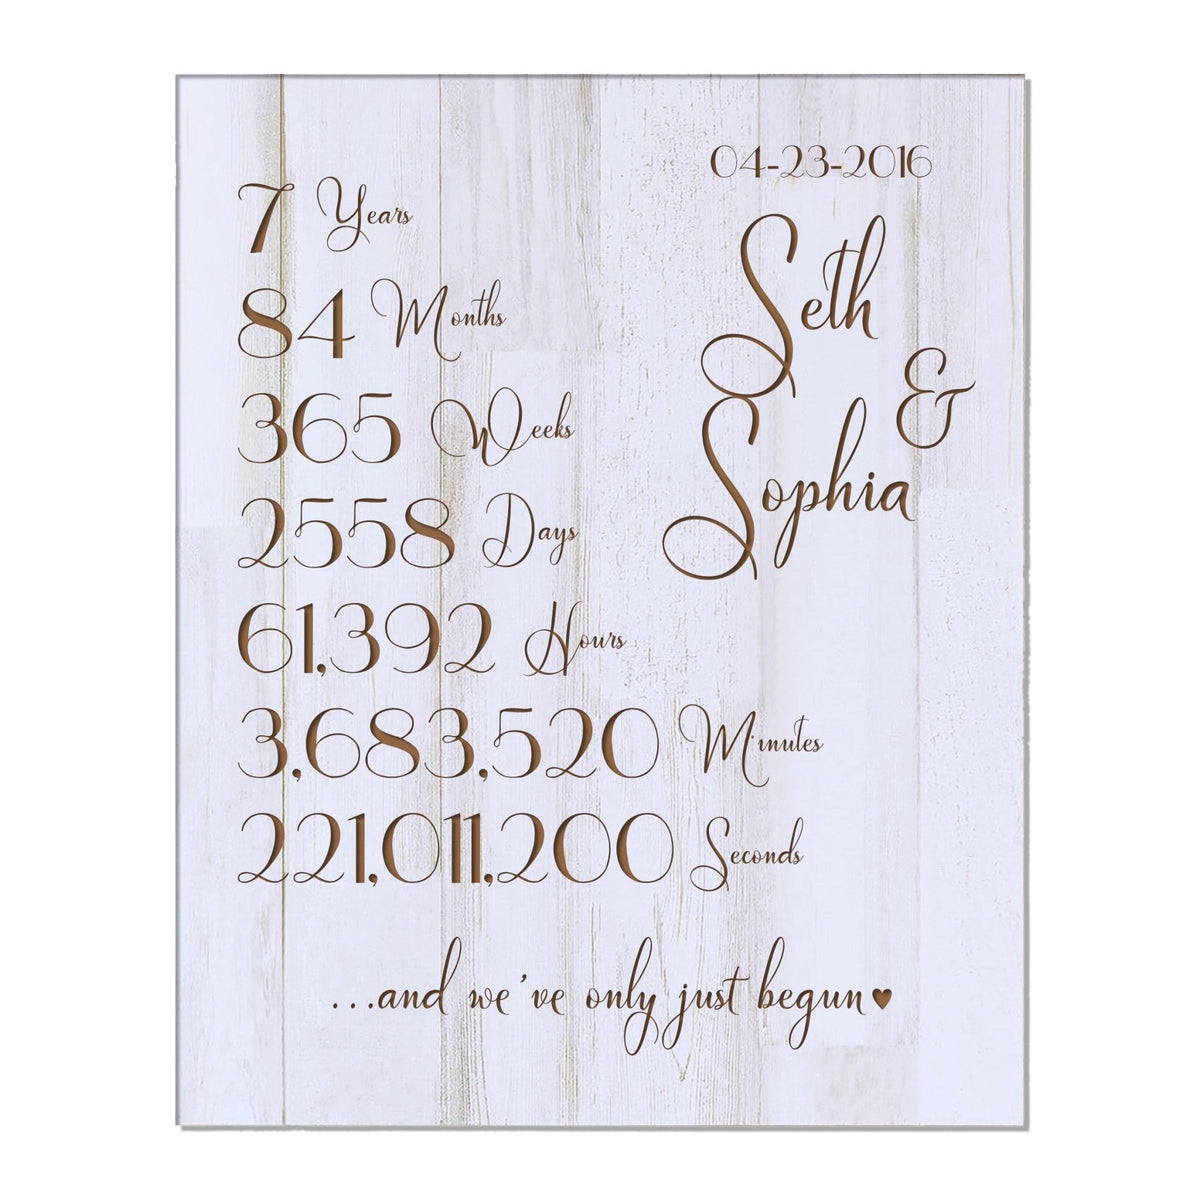 7 Years
84 Months
365 Weeks
2558 Days
61,392 Hours
3,683,520 Minutes
221,011,200 Seconds
04-23-2016
Seth
&
Sophia
...and we've only just begun♥